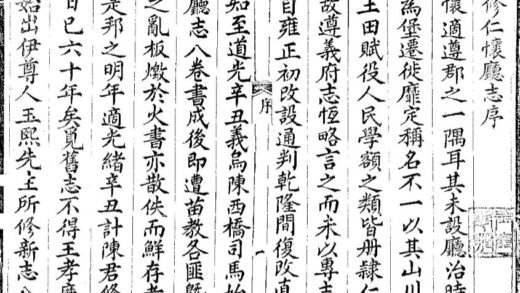 修仁懷廳志序
懷適遵郡之一隅耳其未設廳治時
為堡遷徙靡定稱名不一以其山川
土田賦役人民學額之類皆册隸仁
故遵義府志恆略言之而未以專志
自雍正初改設通判乾隆間復改直
序
知至道光辛丑義烏陳西橋司馬始
廳志八卷書成後即遭苗教各匪
之亂板燬於火書亦散佚而鮮存者
是邦之明年適光緒辛丑計陳君修
日已六十年矣覓舊志不得王孝
始出伊尊人玉熙先生所修新志